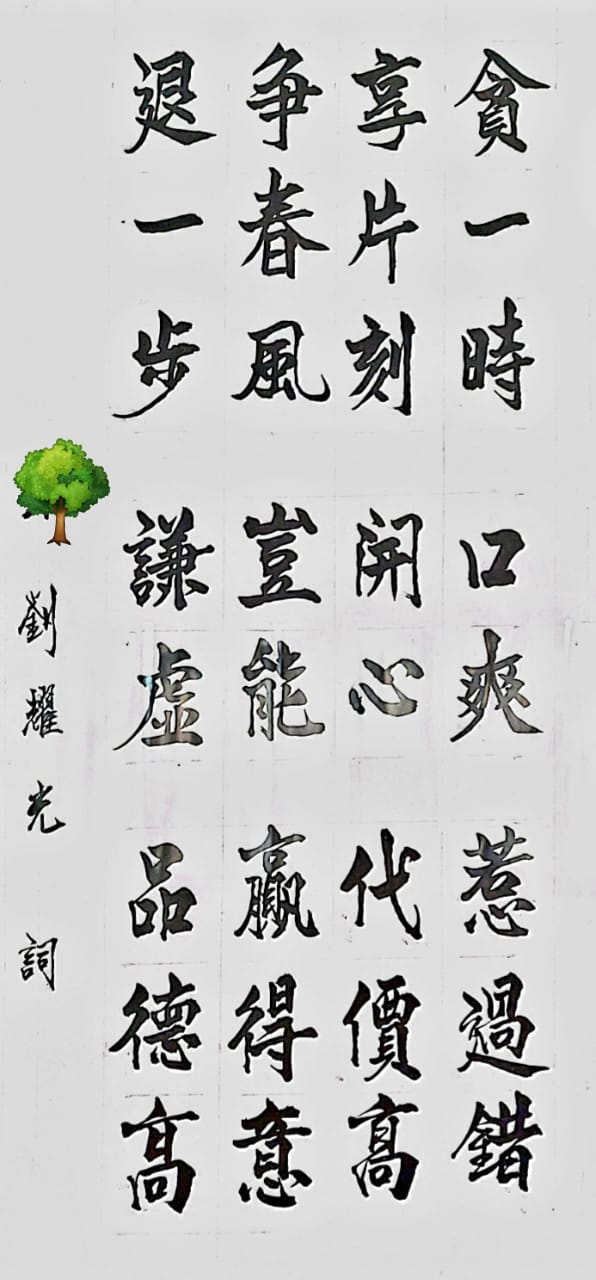 貪一時 口爽 惹過錯
享片刻 開心 代價高
爭春風 豈能 贏得意
退一步 謙虛 品德高
劉耀光 詞